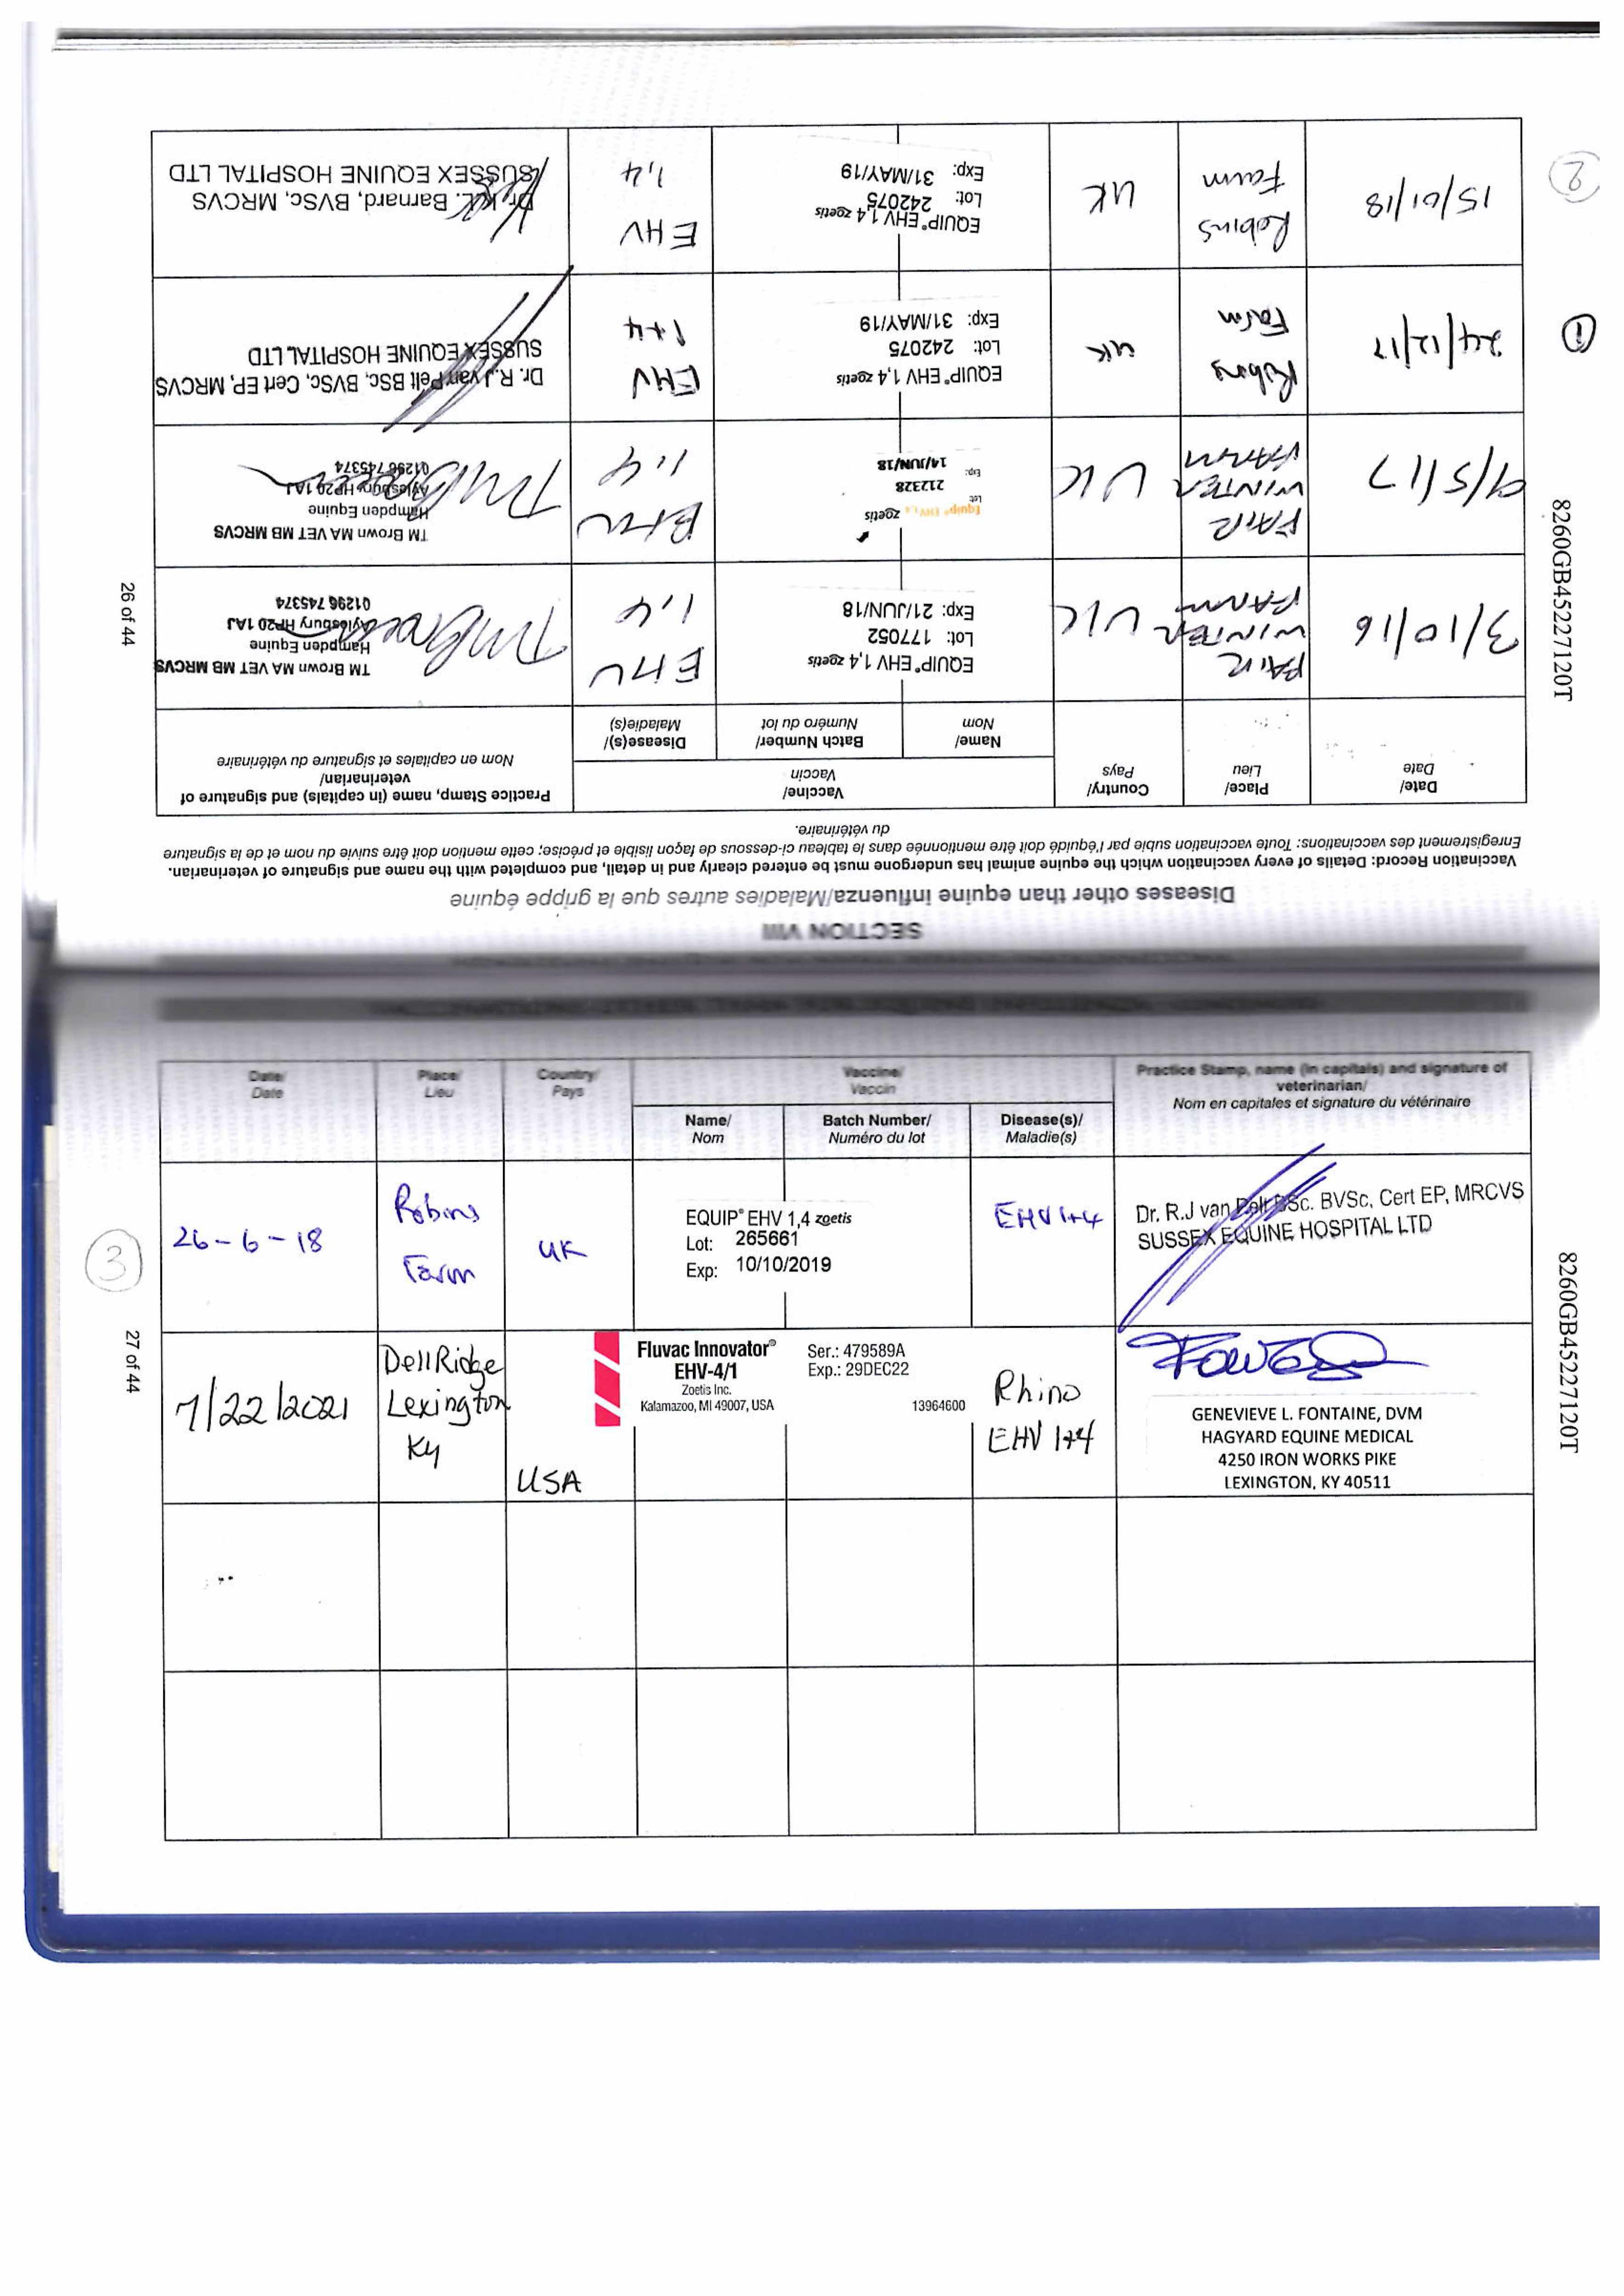 SECTION VIII
Diseases other than equine influenza/Maladies autres que la grippe équine
Vaccination Record: Details of every vaccination which the equine animal has undergone must be entered clearly and in detail, and completed with the name and signature of veterinarian.
Enregistrement des vaccinations: Toute vaccination subie par l'équidé doit être mentionnée dans le tableau ci-dessous de façon lisible et précise; cette mention doit être suivie du nom et de la signature
du vétérinaire.
Date/
Date
Place/
Lieu
Country/
Pays
Vaccine/
Vaccin
Name/
Nom
Batch Number/
Numéro du lot
Disease(s)/
Maladie(s)
Practice Stamp, name (in capitals) and signature of
veterinarian/
Nom en capitales et signature du vétérinaire
3/10/16
FAIR
WINTER
FARM
UK
EQUIP® EHV 1,4 zoetis
Lot: 177052
Exp: 21/JUN/18
EHV
1,4
TM Brown MA VET MB MRCVS
Hampden Equine
Aylesbury HP20 1AJ
01296 745374
9/5/17
FAIR
WINTER
FARM
UK
Equip® EHV 1,4 zoetis
Lot: 212328
Exp: 14/JUN/18
EHV
1,4
TM Brown MA VET MB MRCVS
Hampden Equine
Aylesbury HP20 1AJ
01296 745374
①
24/12/17
Robins
Farm
UK
EQUIP® EHV 1,4 zoetis
Lot: 242075
Exp: 31/MAY/19
EHV
1+4
Dr. R.J van Pelt BSc, BVSc, Cert EP, MRCVS
SUSSEX EQUINE HOSPITAL LTD
②
15/01/18
Robins
Farm
UK
EQUIP® EHV 1,4 zoetis
Lot: 242075
Exp: 31/MAY/19
EHV
1,4
Barnard, BVSc, MRCVS
SUSSEX EQUINE HOSPITAL LTD
8260GB45227120T
26 of 44
Date/
Date
Place/
Lieu
Country/
Pays
Vaccine/
Vaccin
Name/
Nom
Batch Number/
Numéro du lot
Disease(s)/
Maladie(s)
Practice Stamp, name (in capitals) and signature of
veterinarian/
Nom en capitales et signature du vétérinaire
③
26-6-18
Robins
Farm
UK
EQUIP® EHV 1,4 zoetis
Lot: 265661
Exp: 10/10/2019
EHV 1+4
Dr. R.J van Pelt BSc. BVSc, Cert EP, MRCVS
SUSSEX EQUINE HOSPITAL LTD
7/22/2021
DellRidge
Lexington
Ky
USA
Fluvac Innovator®
EHV-4/1
Zoetis Inc.
Kalamazoo, MI 49007, USA
Ser.: 479589A
Exp.: 29DEC22
13964600
Rhino
EHV 1+4
GENEVIEVE L. FONTAINE, DVM
HAGYARD EQUINE MEDICAL
4250 IRON WORKS PIKE
LEXINGTON, KY 40511
8260GB45227120T
27 of 44